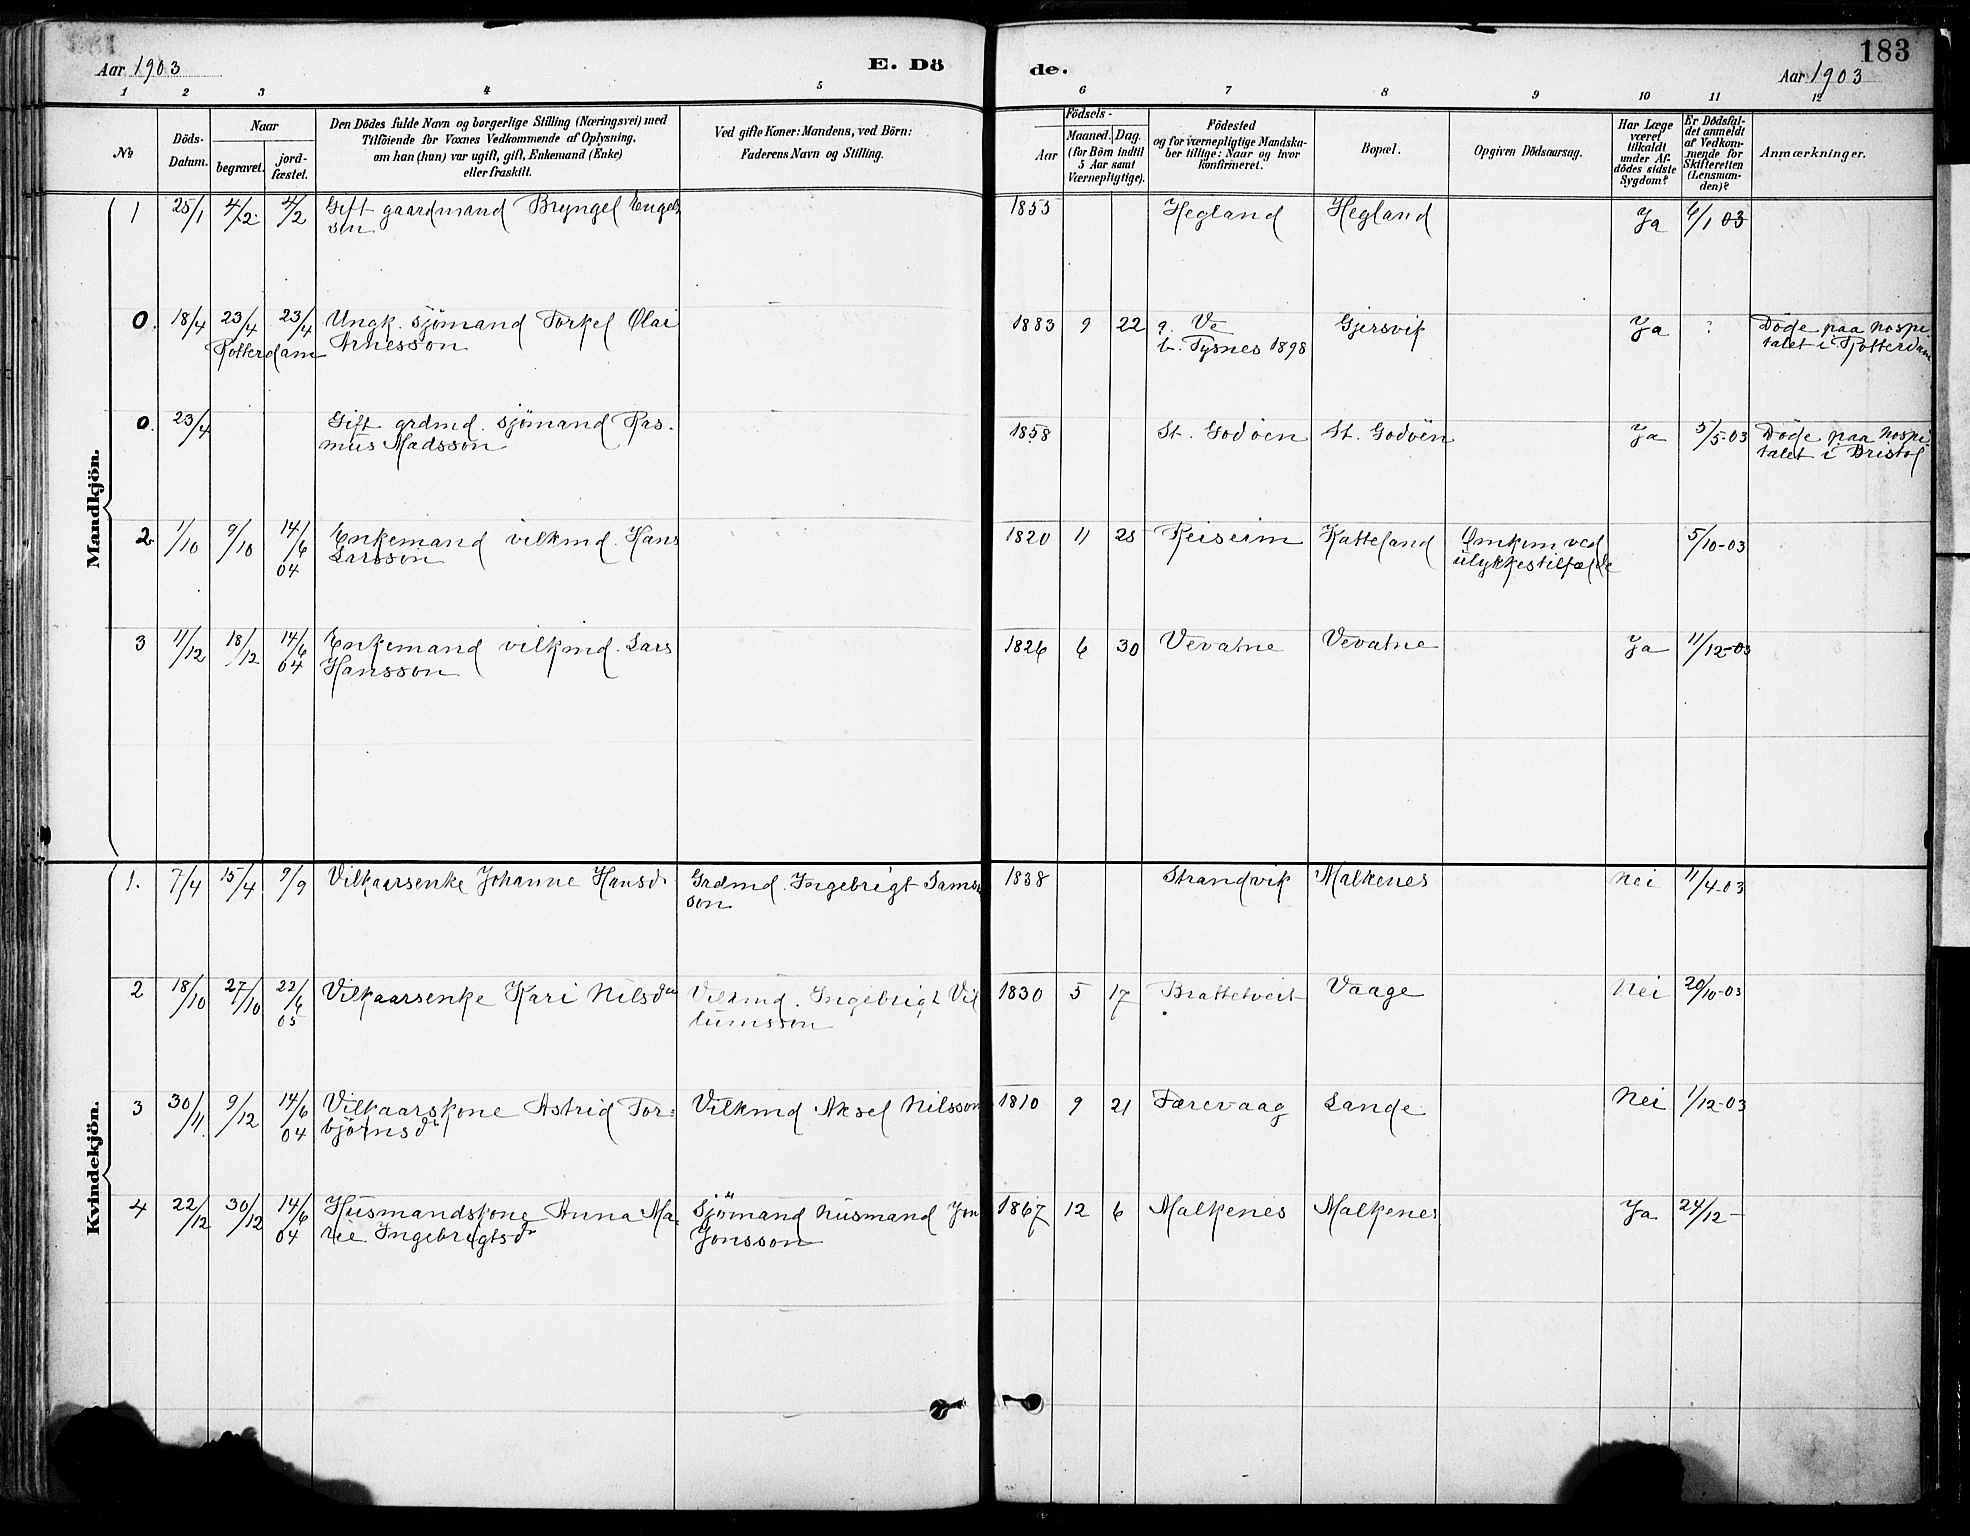 183
Aar 1903
E. Dö
de.
Aar 1903
1 2 3 4 5 6 7 8 9 10 11 12
No
Döds-
Datum.
Naar
begravet.
jord-
fæstet.
Den Dödes fulde Navn og borgerlige Stilling (Næringsvei) med
Tilföiende for Voxnes Vedkommende af Oplysning,
om han (hun) var ugift, gift, Enkemand (Enke)
eller fraskilt.
Ved gifte Koner: Mandens, ved Börn:
Faderens Navn og Stilling.
Födsels-
Aar
Maaned.
Dag.
(for Börn indtil
5 Aar samt
Værnepligtige).
Födested
og for værnepligtige Mandska-
ber tillige: Naar og hvor
konfirmeret.
Bopæl.
Opgiven Dödsaarsag.
Har Læge
været
tilkaldt
under Af-
dödes sidste
Sygdom?
Er Dödsfal-
det anmeldt
af Vedkom-
mende for
Skifteretten
(Lensman-
den)?
Anmærkninger.
Mandkjön.
1 25/1 4/2 4/2 Gift gaardmand Bryngel Engels
son
1853 Hegland Hegland Ja 6/1 03
0. 18/4 23/4 23/4 Ungk. sjömand Torkel Olai
Rotterdam Arnesson
1883 9 22 q. Ve Gjersvik Ja ? Döde paa hospi
b. Tysnes 1898 talet i Rotterdam
0. 23/4 Gift grdmd. sjömand Ras-
mus Madsson
1858 St. Godöen St. Godöen Ja 5/5-03 Döde paa hospi
talet i Bristol
2. 1/10 9/10 14/6 04 Enkemand vilkmd. Hans
Larsson
1820 11 28 Reiseim Katteland Omkom ved 5/10-03
ulykkestilfælde
3 11/12 18/12 14/6 04 Enkemand vilkmd. Lars
Hansson
1826 6 30 Vevatne Vevatne Ja 11/12-03
Kvindekjön.
1. 7/4 15/4 9/9 Vilkaarsenke Johanne Hansd. Grdmd. Ingebrigt Sams
son
1838 Strandvik Malkenes Nei 11/4-03
2 18/10 27/10 22/6 05 Vilkaarsenke Kari Nilsdtr Vilkmd. Ingebrigt Vil
lumsson
1830 5 17 Brattetveit Vaage Nei 20/10-03
3 30/11. 9/12 14/6 04 Vilkaarskone Astrid Tor= Vilkmd Aksel Nilsson
björnsdr
1810 9 21 Færevaag Lande Nei 1/12-03
4 22/12 30/12 14/6 04 Husmandskone Anna Ma- Sjömand husmand Jon
rie Ingebrigtsdr Jonsson
1867 12 6 Malkenes Malkenes Ja 24/12-